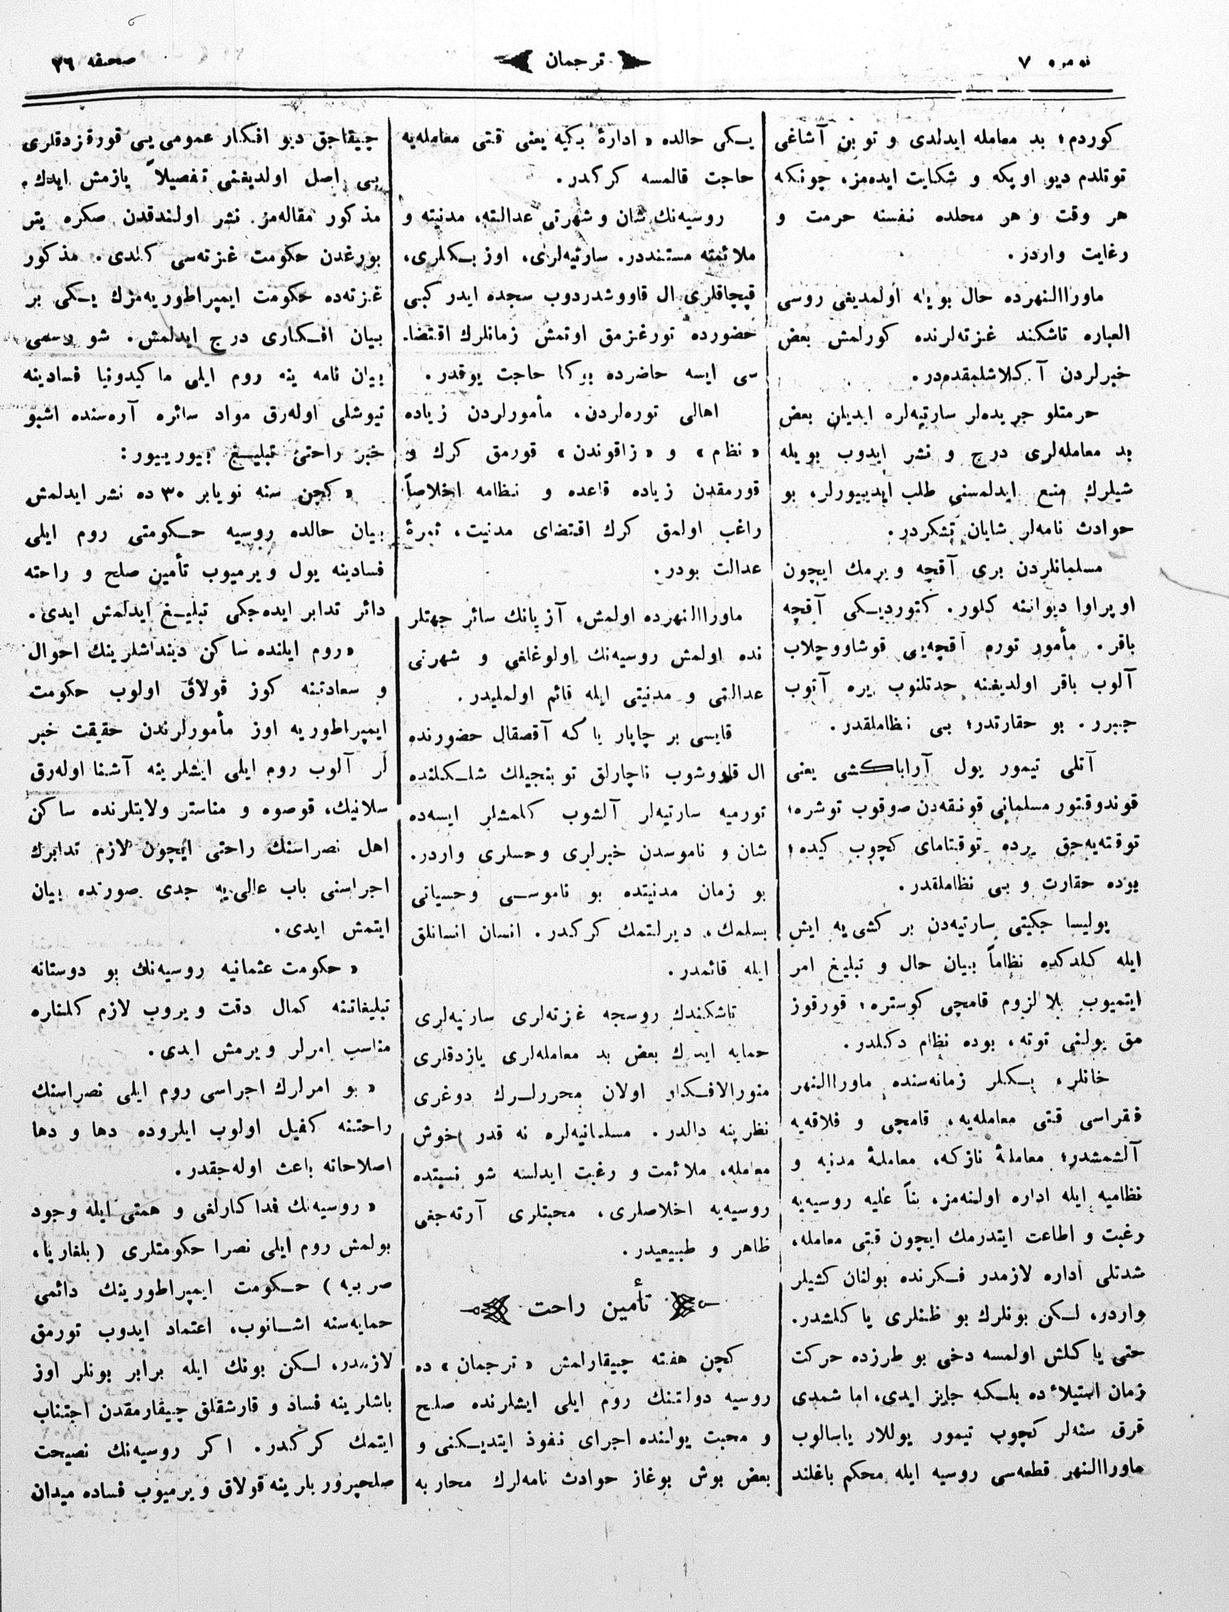 نومره ٧
ترجمان
صحيفه ٢٦
كوردم؛ بد معامله ايدلدى و توبن آشاغى
توتلدم ديو اوپكه و شكايت ايده‌مز، چونكه
هر وقت و هر محلده نفسنه حرمت و
رغايت واردر.
ماوراالنهرده حال بويله اولمديغى روسى
العباره تاشكند غزته‌لرنده كورلمش بعض
خبرلردن آكلاشلمقده‌در.
حرمتلو جريده‌لر سارتيه‌لره ايديلن بعض
بد معامله‌لرى درج و نشر ايدوب بويله
شيلرك منع ايدلمسنى طلب ايدييورلر، بو
حوادث نامه‌لر شايان تشكردر.
مسلمانلردن برى آقچه ويرمك ايچون
اوپراوا ديوانينه كلور. كتورديكى آقچه
باقر. مأمور توره آقچه‌يى قوشاووچلاب
آلوب باقر اولديغنه حدتلنوب يره آتوب
جبرر. بو حقارتدر؛ بى نظاملقدر.
آتلى تيمور يول آراباكشى يعنى
قوندوقتور مسلمانى قونقه‌دن صوقوب توشره؛
توقته‌يه‌جق يرده توقتاماى كچوب كيده؛
بوده حقارت و بى نظاملقدر.
پوليسا جكيتى سارتيه‌دن بر كشى‌يه ايش
ايله كلدكده نظاماً بيان حال و تبليغ امر
ايتميوب بلا لزوم قامچى كوستره؛ قورقوز
مق يولنى توته، بوده نظام دكلدر.
خانلر، بكلر زمانه‌سنده ماوراالنهر
فقراسى قتى معامله‌يه، قامچى و فلاقه‌يه
آلشمشدر؛ معاملهٔ نازكه، معاملهٔ مدنيه و
نظاميه ايله اداره اولنه‌مز، بناً عليه روسيه‌يه
رغبت و اطاعت ايتدرمك ايچون قتى معامله،
شدتلى اداره لازمدر فكرنده بولنان كشيلر
واردر، لكن بونلرك بو ظنلرى ياكلشدر.
حتى ياكلش اولمسه دخى بو طرزده حركت
زمان استيلاءده بلكه جايز ايدى، اما شمدى
قرق سنه‌لر كچوب تيمور يوللار ياسالوب
ماوراالنهر قطعه‌سى روسيه ايله محكم باغلند
يكى حالده «ادارهٔ بكيه يعنى قتى معامله‌يه
حاجت قالمسه كركدر.
روسيه‌نك شان و شهرتى عدالته، مدنيته و
ملائمته مستنددر. سارتيه‌لرى، اوزبكلرى،
قپچاقلرى ال قاووشدردوب سجده ايدر كبى
حضورده تورغزمق اوتمش زمانلرك اقتضا
سى ايسه حاضرده بوكا حاجت يوقدر.
اهالى توره‌لردن، مأمورلردن زياده
«نظم» و «زاقوندن» قورمق كرك و
قورمقدن زياده قاعده و نظامه اخلاصاً
راغب اولمق كرك اقتضاى مدنيت، ثمرهٔ
عدالت بودر.
ماوراالنهرده اولمش، آزيانك سائر جهتلر
نده اولمش روسيه‌نك اولوغلغى و شهرتى
عدالتى و مدنيتى ايله قائم اولمليدر.
قايسى بر چاپار ياكه آقصقال حضورنده
ال قاووشوب ناچارلق توبنچيلك شكلنده
تورميه سارتيه‌لر آلشوب كلمشلر ايسه‌ده
شان و ناموسدن خبرلرى وحسلرى واردر.
بو زمان مدنيتده بو ناموسى وحسيانى
بسلمك، ديرلتمك كركدر. انسان انسانلق
ايله قائمدر.
تاشكندك روسجه غزته‌لرى سارتيه‌لرى
حمايه ايدرك بعض بد معامله‌لرى يازدقلرى
منورالافكار اولان محررلرك دوغرى
نظرينه دالدر. مسلمانيه‌لره نه قدر خوش
معامله، ملائمت و رغبت ايدلسه شو نسبتده
روسيه‌يه اخلاصلرى، محبتلرى آرته‌جغى
ظاهر و طبيعيدر.
تأمين راحت
كچن هفته چيقارلمش «ترجمان» ده
روسيه دولتنك روم ايلى ايشلرنده صلح
و محبت يولنده اجراى نفوذ ايتديكنى و
بعض بوش بوغاز حوادث نامه‌لرك محاربه
چيقاجق ديو افكار عمومى‌يى قورقزدقلرى
بى اصل اولديغنى تفصيلاً يازمش ايدك.
مذكور مقاله‌مز نشر اولندقدن صكره پتر
بورغدن حكومت غزته‌سى كلدى. مذكور
غزته‌ده حكومت ايمپراطوريه‌مزك يكى بر
بيان افكارى درج ايدلمش. شو رسمى
بيان نامه ينه روم ايلى ماكيدونيا فسادينه
تيوشلى اوله‌رق مواد سائره آره‌سنده اشبو
خبر راحتى تبليغ بيورييور:
«كچن سنه نويابر ٣٠ ده نشر ايدلمش
بيان حالده روسيه حكومتى روم ايلى
فسادينه يول ويرميوب تأمين صلح و راحته
دائر تدابر ايده‌جكى تبليغ ايدلمش ايدى.
«روم ايلنده ساكن دينداشلرينك احوال
و سعادتنه كوز قولاق اولوب حكومت
ايمپراطوريه اوز مأمورلرندن حقيقت خبر
لر آلوب روم ايلى ايشلرينه آشنا اوله‌رق
سلانيك، قوصوه و مناستر ولايتلرنده ساكن
اهل نصراسنك راحتى ايچون لازم تدابرك
اجراسنى باب عالى‌يه جدى صورتده بيان
ايتمش ايدى.
«حكومت عثمانيه روسيه‌نك بو دوستانه
تبليغاتنه كمال دقت ويروب لازم كلنلره
مناسب امرلر ويرمش ايدى.
«بو امرلرك اجراسى روم ايلى نصراسنك
راحتنه كفيل اولوب ايلروده دها و دها
اصلاحاته باعث اوله‌جقدر.
«روسيه‌نك فداكارلغى و همتى ايله وجود
بولمش روم ايلى نصرا حكومتلرى (بلغاريا،
صربيه) حكومت ايمپراطورينك دائمى
حمايه‌سنه اشانوب، اعتماد ايدوب تورمق
لازمدر، لكن بونك ايله برابر بونلر اوز
باشلرينه فساد و قارشقلق چيقارمقدن اجتناب
ايتمك كركدر. اكر روسيه‌نك نصيحت
صلحپرورلرينه قولاق ويرميوب فساده ميدان